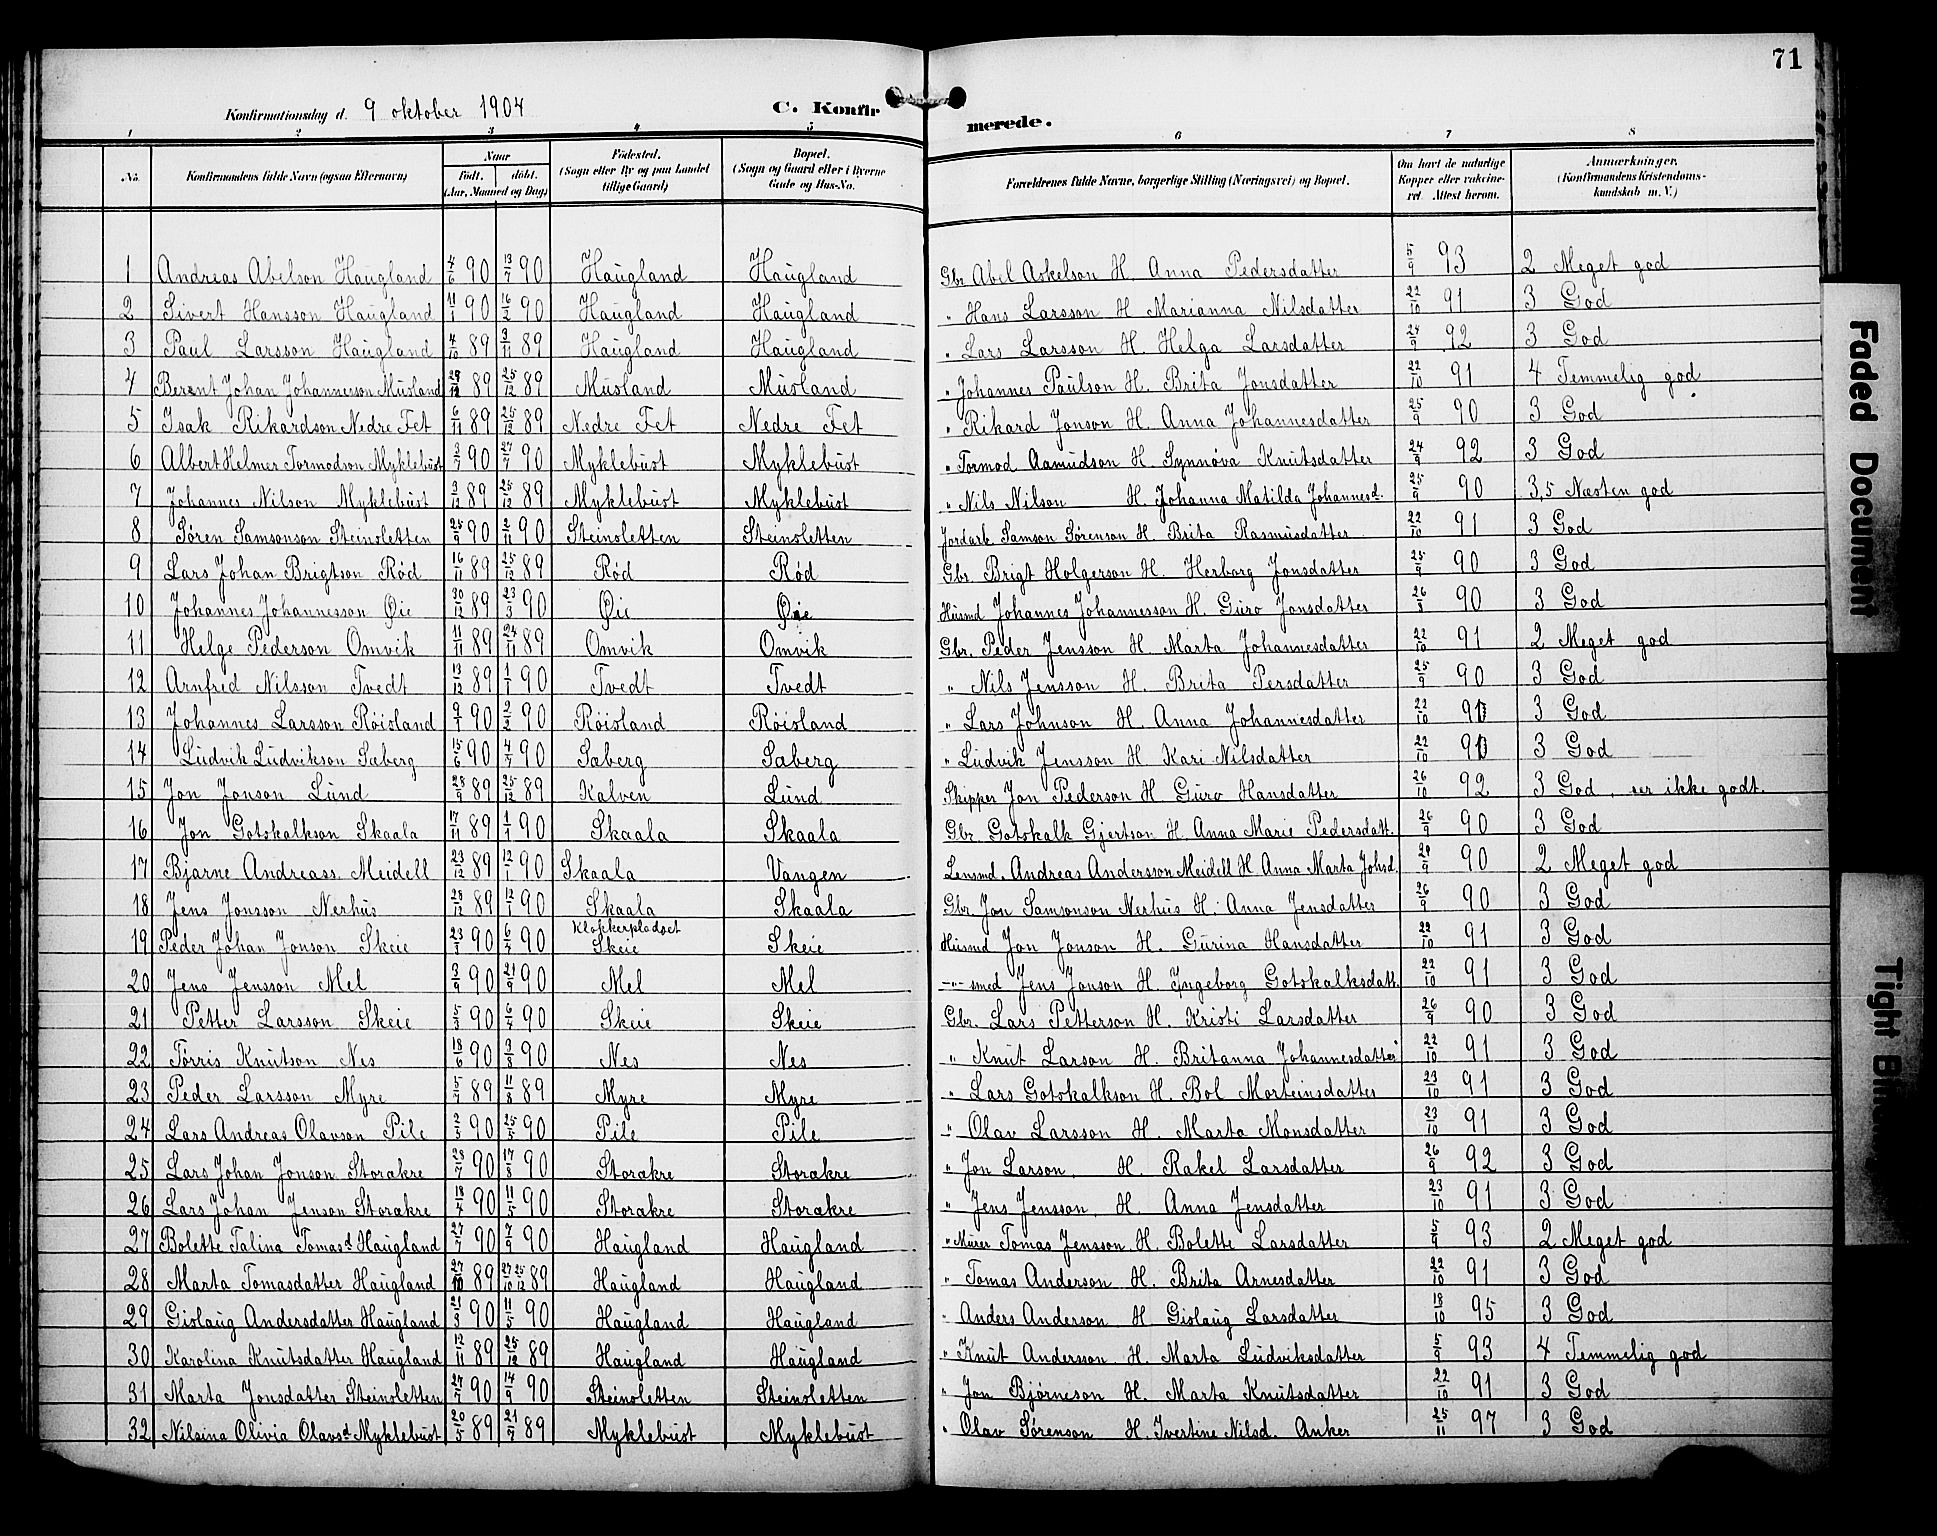 71
Konfirmationsdag d. 9 oktober 1904 C. Konfirmerede.
1 2 3 4 5 6 7 8
No. Konfirmandens fulde Navn (ogsaa Efternavn) Naar Født. døbt. (Aar, Maaned og Dag) Fødested. (Sogn eller By og paa Landet tillige Gaard) Bopæl. (Sogn og Gaard eller i Byerne Gade og Hus-No. Forældrenes fulde Navne, borgerlige Stilling (Næringsvei) og Bopæl. Om havt de naturlige Kopper eller vakcineret Attest herom. Anmærkninger. (Konfirmandens Kristendomskundskab m. V.)
1 Andreas Abelson Haugland 4/6 90 13/7 90 Haugland Haugland Gbr. Abel Askelson H. Anna Pedersdatter 5/9 93 2 Meget god
2 Sivert Hansson Haugland 11/1 90 16/2 90 Haugland Haugland " Hans Larsson H Marianna Nilsdatter 22/10 91 3 God
3 Paul Larsson Haugland 4/10 89 3/11 89 Haugland Haugland " Lars Larsson H. Helga Larsdatter 24/9 92 3 God
4 Berent Johan Johannesson Musland 89 25/12 89 Musland Musland " Johannes Paulson H. Brita Jonsdatter 22/10 91 4 Temmelig god
5 Isak Rikardson Nedre Fet 6/11 89 25/12 89 Nedre Fet Nedre Fet " Rikard Jonson H. Anna Johannesdatter 25/9 90 3 God
6 Albert Helmer Tormodson Myklebust 3/7 90 27/7 90 Myklebust Myklebust " Tormod Aamudson H. Synnøva Knutsdatter 24/9 92 3 God
7 Johannes Nilson Myklebust 3/12 89 25/12 89 Myklebust Myklebust " Nils Nilson H. Johanna Matilda Johannesd. 25/9 90 3,5 Næsten god
8 Søren Samsonson Steinsletten 25/9 90 2/11 90 Steinsletten Steinsletten Jordarb. Samson Sørenson H. Brita Rasmusdatter 22/10 91 3 God
9 Lars Johan Brigtson Rød 16/11 89 25/12 89 Rød Rød Gbr. Brigt Holgerson H. Herborg Jonsdatter 25/9 90 3 God
10 Johannes Johannesson Øie 30/12 89 23/3 90 Øie Øie Husmd Johannes Johannesson H. Guro Jonsdatter 26/8 90 3 God
11 Helge Pederson Omvik 11/11 89 24/11 89 Omvik Omvik Gbr. Peder Jensson H. Marta Johannesdatter 22/10 91 2 Meget god
12 Arnfred Nilsson Tvedt 13/12 89 1/1 90 Tvedt Tvedt " Nils Jensson H. Brita Persdatter 25/9 90 3 God
13 Johannes Larsson Røisland 9/1 90 2/2 90 Røisland Røisland " Lars Johnson H. Anna Johannesdatter 22/10 3 God
14 Ludvik Ludvikson Sæberg 15/6 90 4/7 90 Sæberg Sæberg " Ludvik Jensson H Kari Nilsdatter 22/10 3 God
15 Jon Jonson Lund 28/9 89 25/12 89 Kalven Lund Skipper Jon Pederson H. Guro Hansdatter 26/10 92 3 God, ser ikke godt.
16 Jon Gotskalkson Skaala 17/11 89 1/1 90 Skaala Skaala Gbr. Gotskalk Gjertson H. Anna Marie Pedersdatt. 26/9 90 3 God
17 Bjarne Andreass. Meidell 23/12 89 12/1 90 Skaala Vangen Lensmd. Andreas Andersson Meidell H Anna Marta Johsd. 90 2 Meget god
18 Jens Jonsson Nerhus 28/12 89 12/1 90 Skaala Skaala Gbr. Jon Samsonson Nerhus H. Anna Jensdatter 26/9 90 3 God
19 Peder Johan Jonson Skeie 23/3 90 6/4 90 Klokkerpladset Skeie Skeie Husmd Jon Jonson H. Gurina Hansdatter 22/10 91 3 God
20 Jens Jensson Mel 3/9 90 21/9 90 Mel Mel -"- smed Jens Jonson H. Ingeborg Gotskalksdatt. 22/10 91 3 God
21 Petter Larsson Skeie 5/3 90 6/4 90 Skeie Skeie Gbr. Lars Petterson H. Kristi Larsdatter 26/9 90 3 God
22 Tørris Knutson Nes 18/6 90 3/8 90 Nes Nes " Knut Larson H. Britanna Johannesdatter 22/10 91 3 God
23 Peder Larsson Myre 5/7 89 11/8 89 Myre Myre " Lars Gotskalkson H. Bol Morteinsdatter 23/10 91 3 God
24 Lars Andreas Olavson Pile 2/5 90 25/5 90 Pile Pile " Olav Larsson H. Marta Monsdatter 23/10 91 3 God
25 Lars Johan Jonson Storakre 23/7 90 17/8 90 Storakre Storakre " Jon Larson, H. Rakel Larsdatter 26/9 92 3 God
26 Lars Johan Jenson Storakre 18/4 90 11/5 90 Storakre Storakre " Jens Jensson, H. Anna Jensdatter 23/10 91 3 God
27 Bolette Talina Tomasd. Haugland 27/7 90 7/9 90 Haugland Haugland " Murer Tomas Jensson H. Bolette Larsdatter 5/9 93 2 Meget god
28 Marta Tomasdatter Haugland 27/10 89 27/10 25/12 89 Haugland Haugland " Tomas Anderson H. Brita Arnesdatter 22/10 91 3 God
29 Gislaug Andersdatter Haugland 21/3 90 11/5 90 Haugland Haugland " Anders Anderson H Gislaug Larsdatter 18/10 95 3 God
30 Karolina Knutsdatter Haugland 12/11 89 25/12 89 Haugland Haugland " Knut Andersson H. Marta Ludviksdatter 5/9 93 4 Temmelig god
31 Marta Jonsdatter Steinsletten 27/7 90 14/9 90 Steinsletten Steinsletten " Jon Bjørneson H. Marta Knutsdatter 22/10 91 3 God
32 Nilsina Olivia Olavsd Myklebust 20/5 89 21/7 89 Myklebust Myklebust " Olav Sørenson H. Ivertine Nilsd. Anker 25/11 97 3 God
Faded Document
Tight